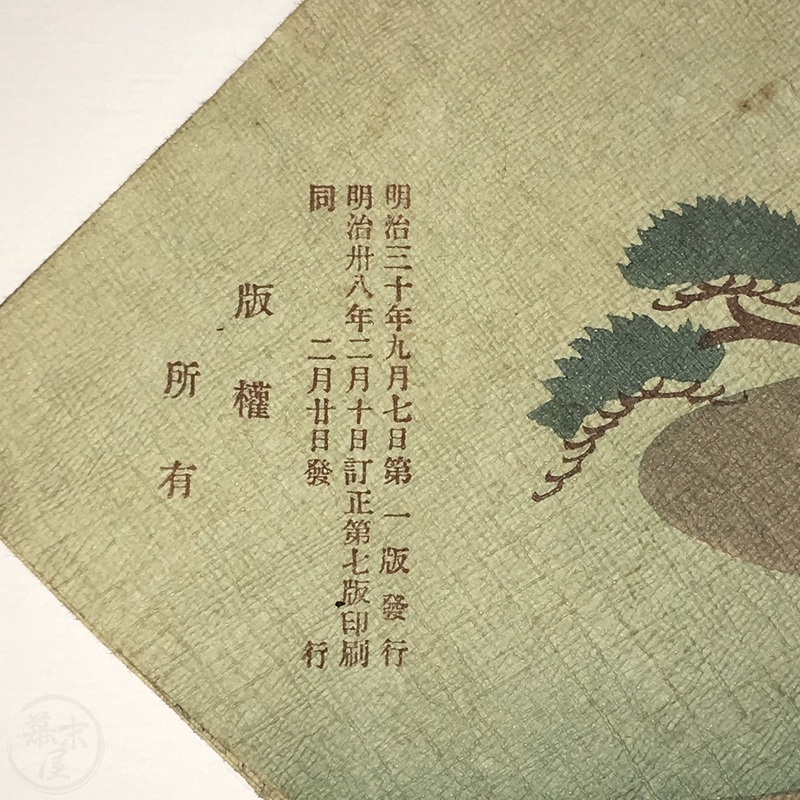 明治三十年九月七日第一版發行
明治卅八年二月十日訂正第七版印刷
同二月廿日發行
版權
所有
幕末屋